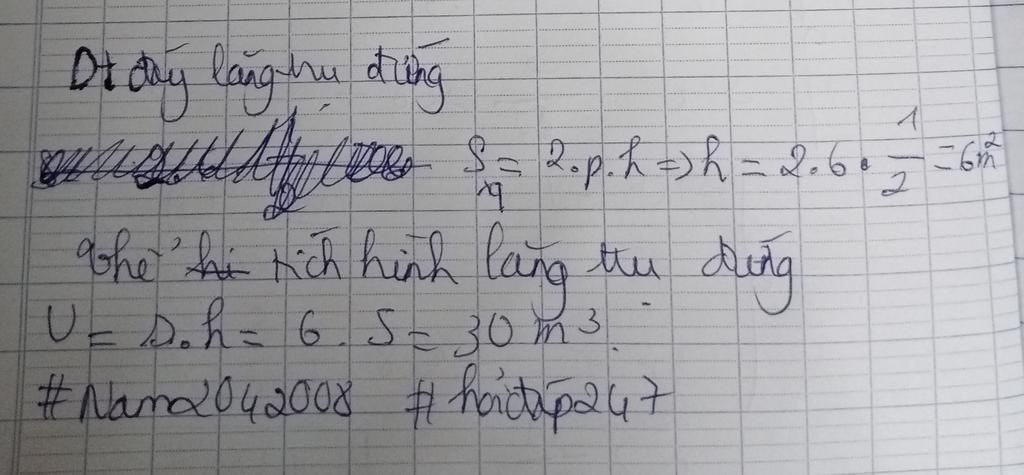 Dt đáy lăng trụ đứng
Sxq = 2.p.h => h = 2.6.1/2 = 6m²
Thể tích hình lăng trụ đứng
V = S.h = 6.5 = 30 m³.
#Nam2042008 #hoidap247